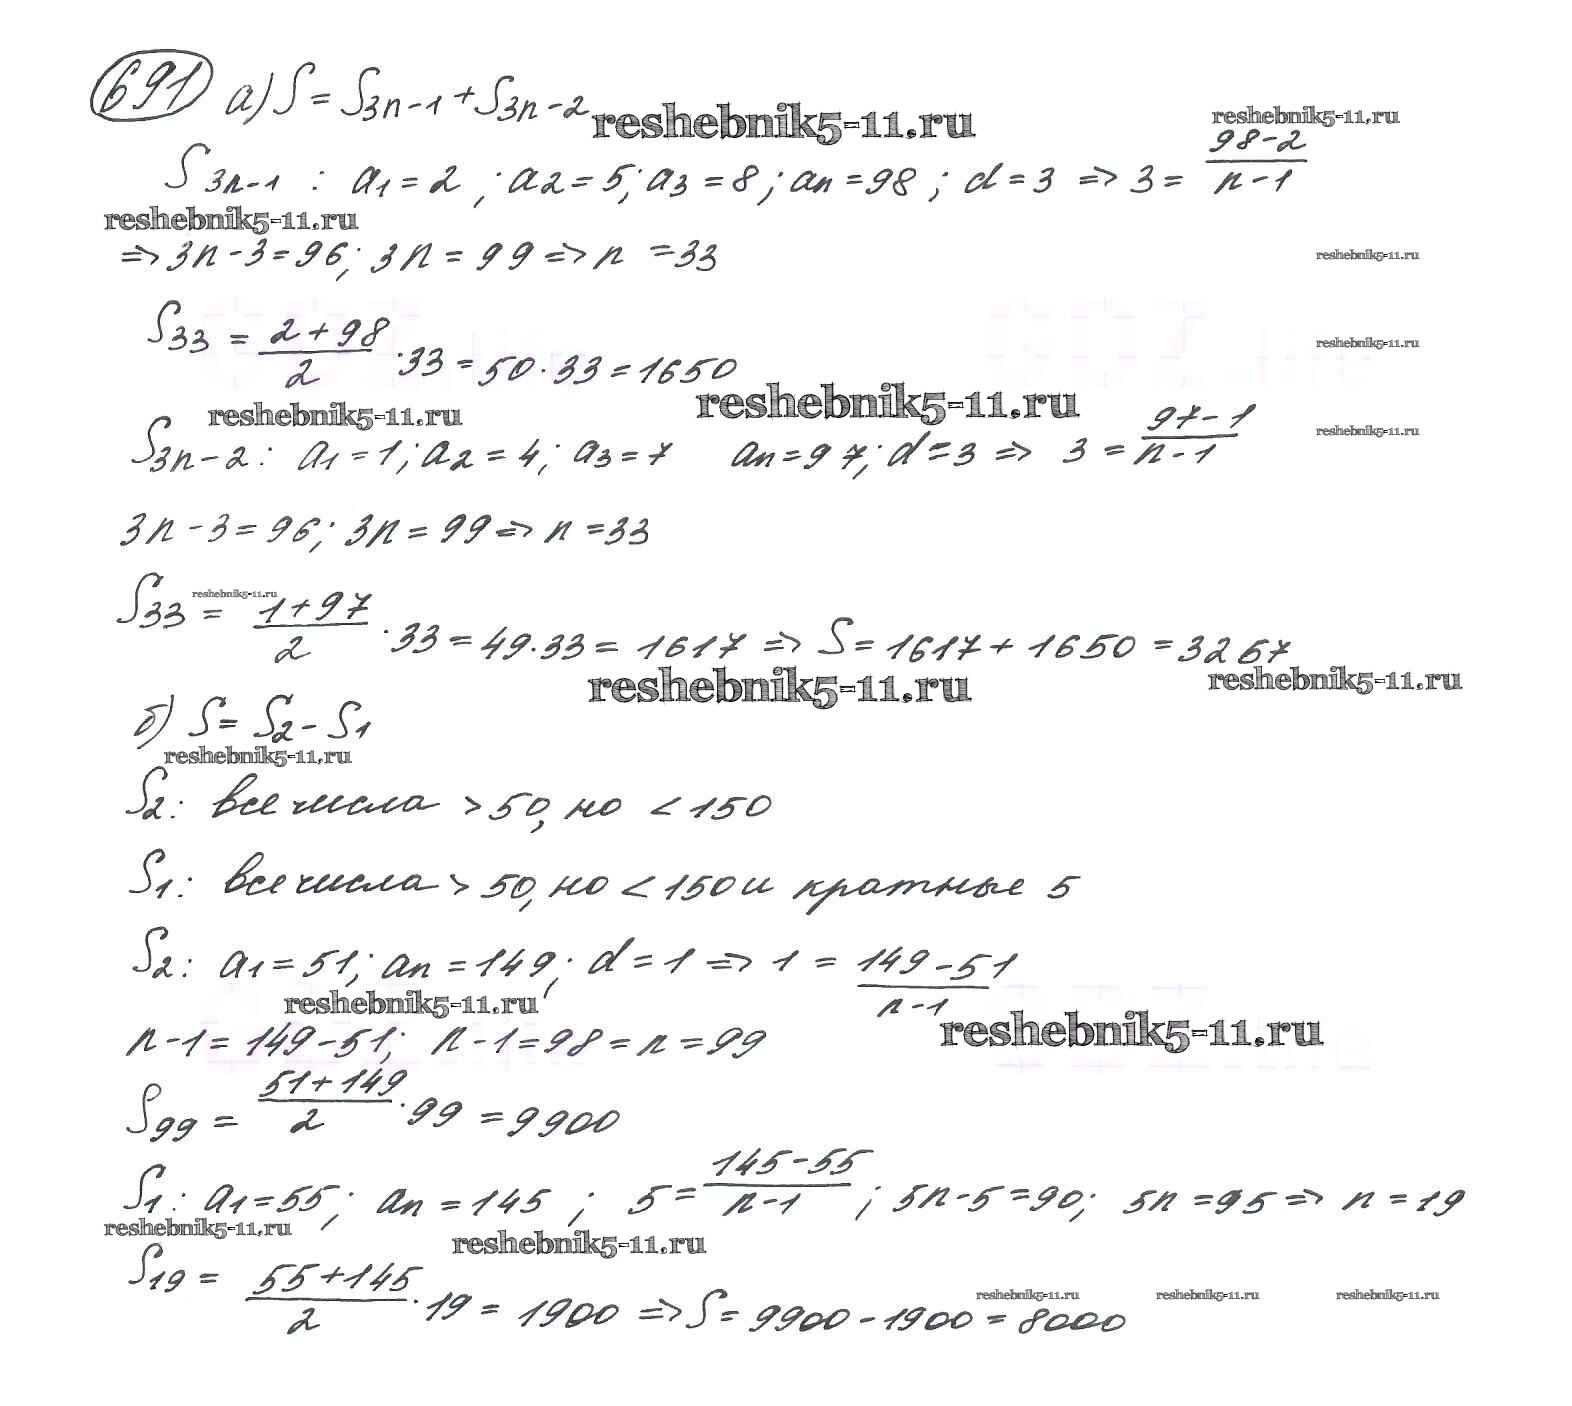 691 а) S = S3n-1 + S3n-2
reshebnik5-11.ru reshebnik5-11.ru
S3n-1 : a1 = 2 ; a2 = 5; a3 = 8; an = 98 ; d = 3 => 3 = (98-2)/(n-1)
reshebnik5-11.ru
=> 3n - 3 = 96; 3n = 99 => n = 33
reshebnik5-11.ru
S33 = (2+98)/2 · 33 = 50 · 33 = 1650
reshebnik5-11.ru
reshebnik5-11.ru reshebnik5-11.ru
S3n-2 : a1 = 1; a2 = 4; a3 = 7 an = 97; d = 3 => 3 = (97-1)/(n-1)
reshebnik5-11.ru
3n - 3 = 96; 3n = 99 => n = 33
reshebnik5-11.ru
S33 = (1+97)/2 · 33 = 49 · 33 = 1617 => S = 1617 + 1650 = 3267
reshebnik5-11.ru reshebnik5-11.ru
б) S = S2 - S1
reshebnik5-11.ru
S2: все числа > 50, но < 150
S1: все числа > 50, но < 150 и кратные 5
S2: a1 = 51; an = 149; d = 1 => 1 = (149-51)/(n-1)
reshebnik5-11.ru reshebnik5-11.ru
n - 1 = 149 - 51; n - 1 = 98 = n = 99
S99 = (51+149)/2 · 99 = 9900
S1: a1 = 55; an = 145 ; 5 = (145-55)/(n-1) ; 5n - 5 = 90; 5n = 95 => n = 19
reshebnik5-11.ru reshebnik5-11.ru
S19 = (55+145)/2 · 19 = 1900 => S = 9900 - 1900 = 8000
reshebnik5-11.ru reshebnik5-11.ru reshebnik5-11.ru